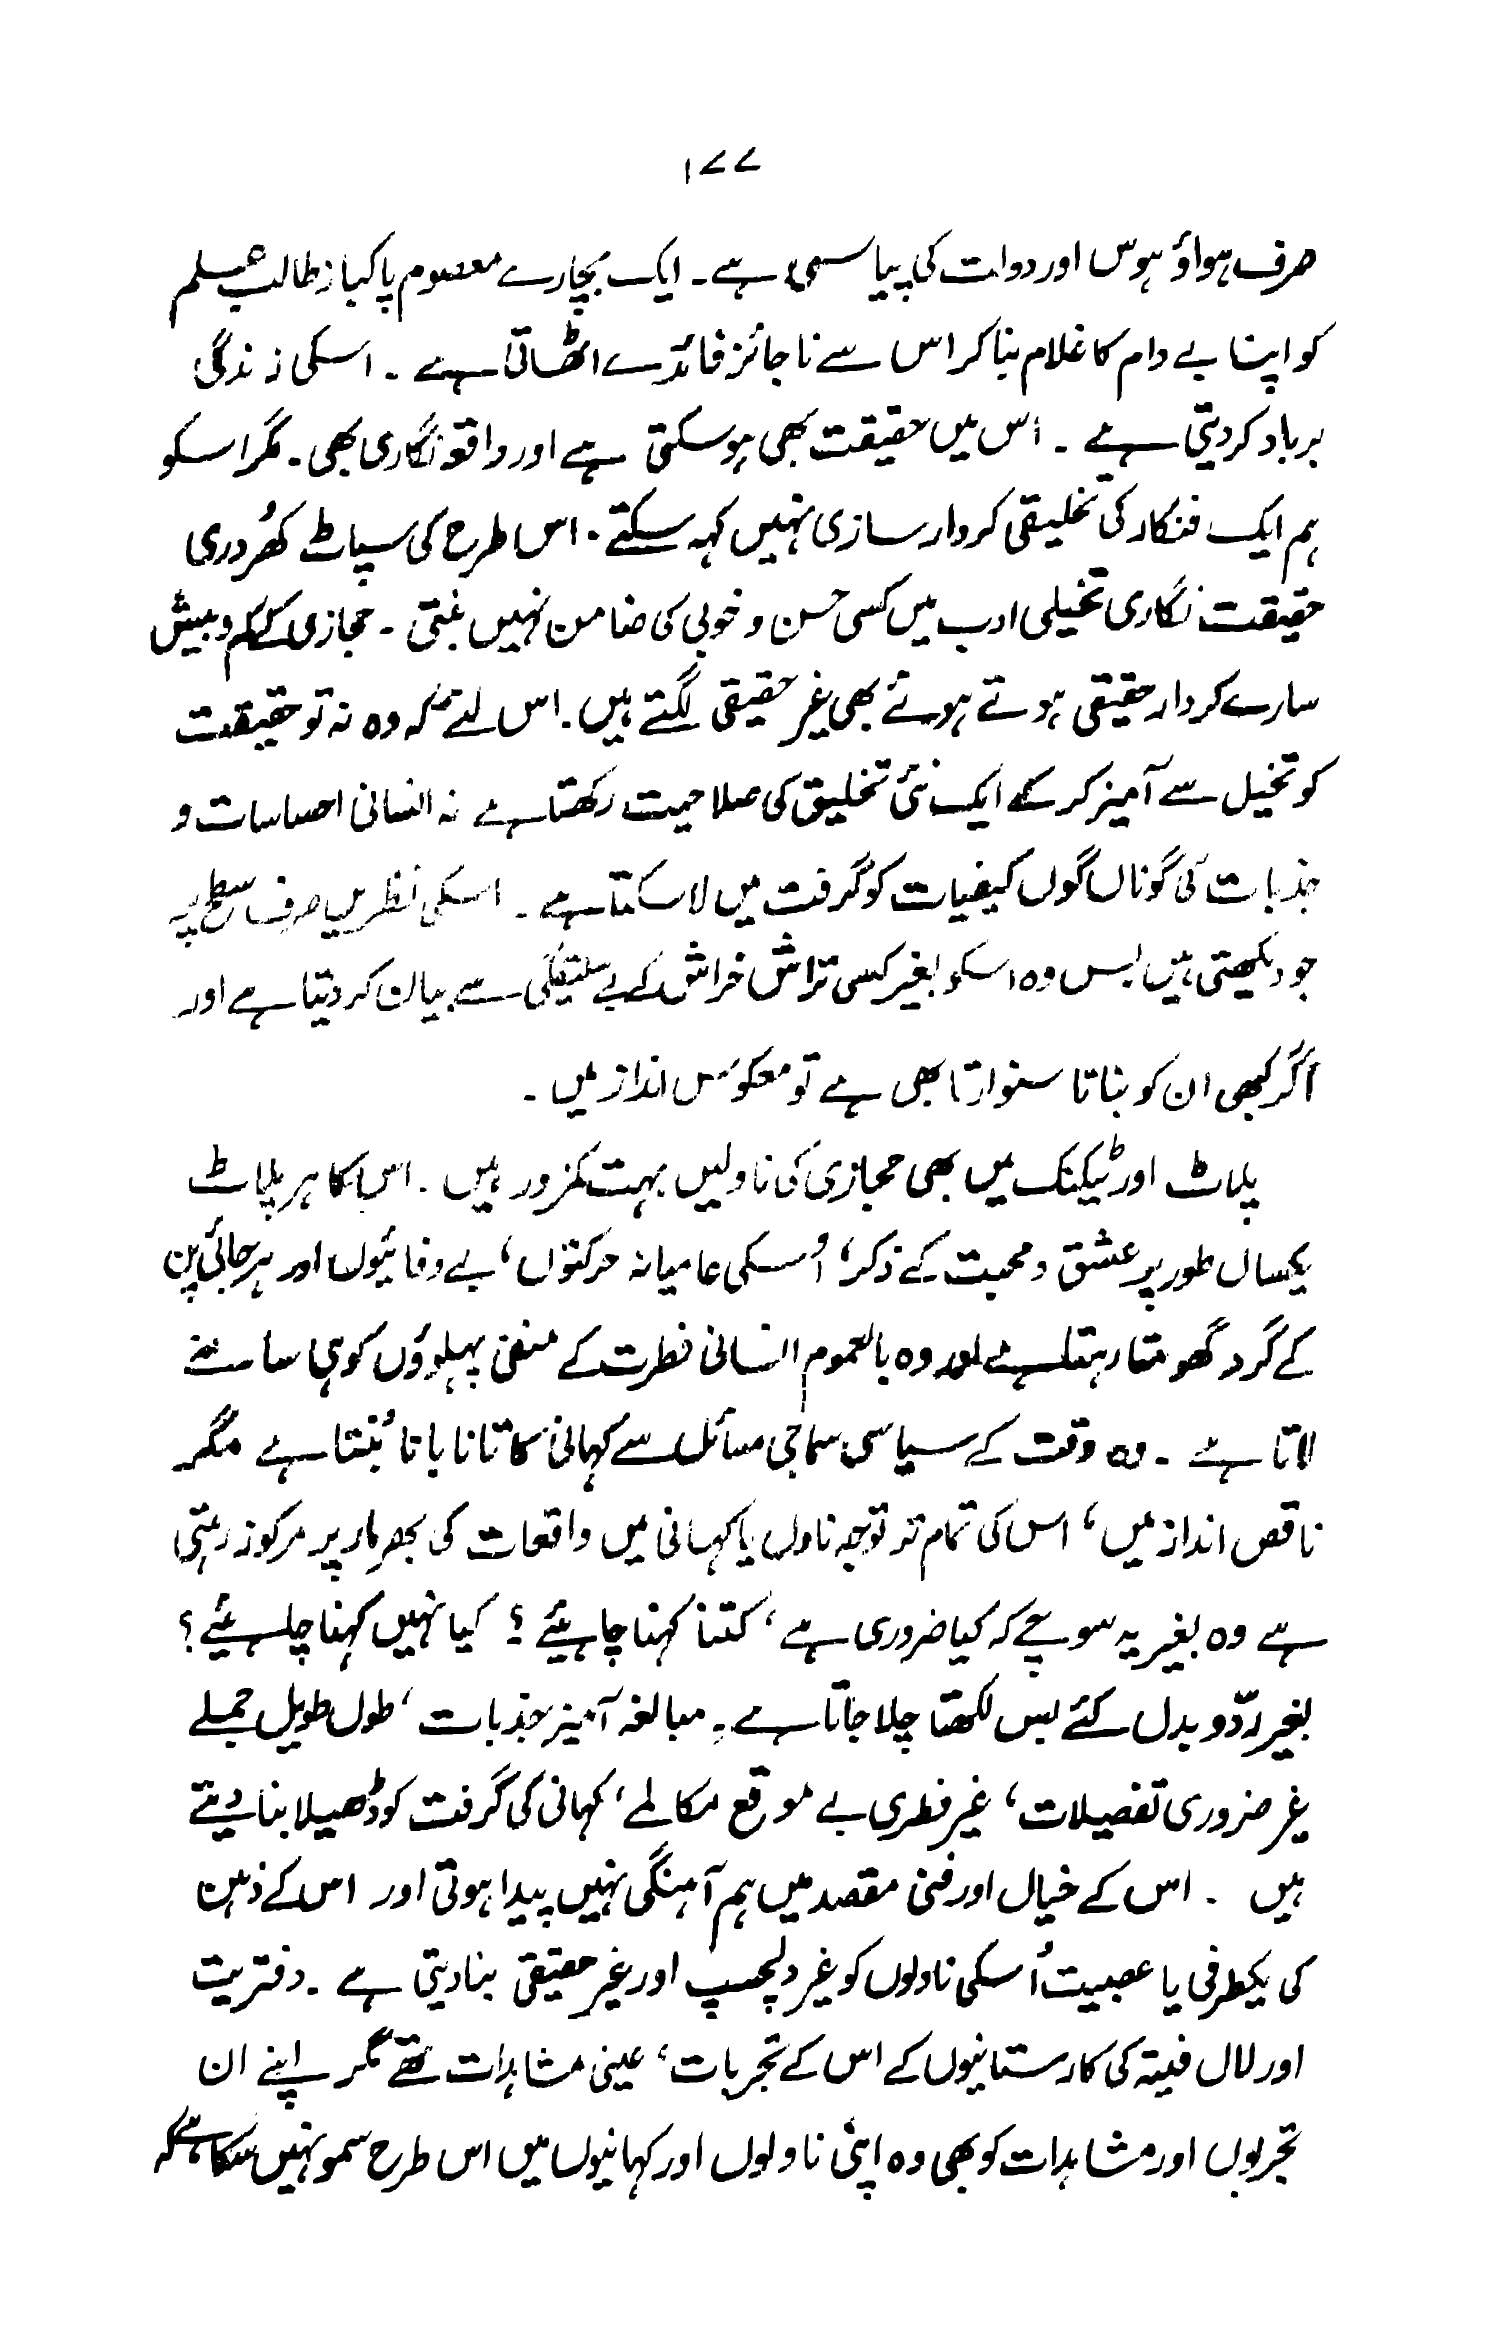 ۱۷۷
صرف ہواؤ ہوس اور دولت کی پیاسی ہے۔ ایک بچارے معصوم پاکباز طالب علم
کو اپنا بے دام کا غلام بنا کر اس سے ناجائز فائدے اٹھاتی ہے۔ اسکی زندگی
برباد کردیتی ہے۔ اس میں حقیقت بھی ہوسکتی ہے اور واقعہ نگاری بھی۔ مگر اسکو
ہم ایک فنکار کی تخلیقی کردار سازی نہیں کہہ سکتے۔ اس طرح کی سپاٹ کھُردری
حقیقت نگاری تخیلی ادب میں کسی حسن و خوبی کی ضامن نہیں بنتی۔ حجازی کے کم و بیش
سارے کردار حقیقی ہوتے ہوئے بھی غیر حقیقی لگتے ہیں۔ اس لئے کہ وہ نہ تو حقیقت
کو تخیل سے آمیز کر کے ایک نئی تخلیق کی صلاحیت رکھتا ہے نہ انسانی احساسات و
جذبات کی گوناں گوں کیفیات کو گرفت میں لا سکتا ہے۔ اسکی نظریں صرف سطح پہ
جو دیکھتی ہیں بس وہ اسکو بغیر کسی تراش خراش کے بے سلیقگی سے بیان کر دیتا ہے اور
اگر کبھی ان کو بناتا سنوارتا بھی ہے تو معکوس انداز میں۔
پلاٹ اور ٹیکنک میں بھی حجازی کی ناولیں بہت کمزور ہیں۔ اس کا ہر پلاٹ
یکساں طور پر عشق و محبت کے ذکر، اُسکی عامیانہ حرکتوں، بے وفائیوں اور ہرجائی پن
کے گرد گھومتا رہتا ہے اور وہ بالعموم انسانی فطرت کے منفی پہلوؤں کو ہی سامنے
لاتا ہے۔ وہ وقت کے سیاسی سماجی مسائل سے کہانی کا تانا بانا بُنتا ہے مگر
ناقص انداز میں، اس کی تمام تر توجہ ناول یا کہانی میں واقعات کی بھرمار پر مرکوز رہتی
ہے وہ بغیر یہ سوچے کہ کیا ضروری ہے، کتنا کہنا چاہیئے؟ کیا نہیں کہنا چاہیئے؟
بغیر ردّ و بدل کئے بس لکھتا چلا جاتا ہے۔ مبالغہ آمیز جذبات، طول طویل جملے
غیر ضروری تفصیلات، غیر فطری بے موقع مکالمے، کہانی کی گرفت کو ڈھیلا بنا دیتے
ہیں۔ اس کے خیال اور فنی مقصد میں ہم آہنگی نہیں پیدا ہوتی اور اس کے ذہن
کی یکطرفی یا عصبیت اُسکی ناولوں کو غیر دلچسپ اور غیر حقیقی بنا دیتی ہے۔ دفتریت
اور لال فیتہ کی کارستانیوں کے اس کے تجربات، عینی مشاہدات تھے مگر اپنے ان
تجربوں اور مشاہدات کو بھی وہ اپنی ناولوں اور کہانیوں میں اس طرح سمو نہیں سکا ہے کہ